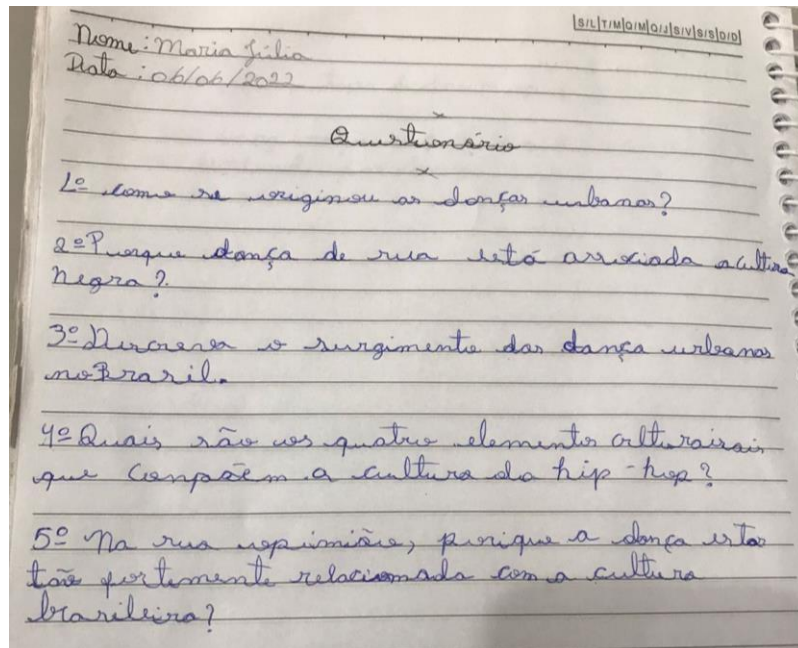 S/L|T/M|Q/M|Q/J|S/V|S/S|D/D
Nome: Maria Júlia
Data: 06/06/2022
Questionário
1º como se originou as danças urbanas?
2º Porque dança de rua está associada a cultura
negra?
3º Descreva o surgimento das dança urbanas
no Brasil.
4º Quais são os quatro elementos culturairais
que conpõem a cultura do hip-hop?
5º Na sua opinião, porique a dança esta
tão fortemente relacionada com a cultura
brasileira?